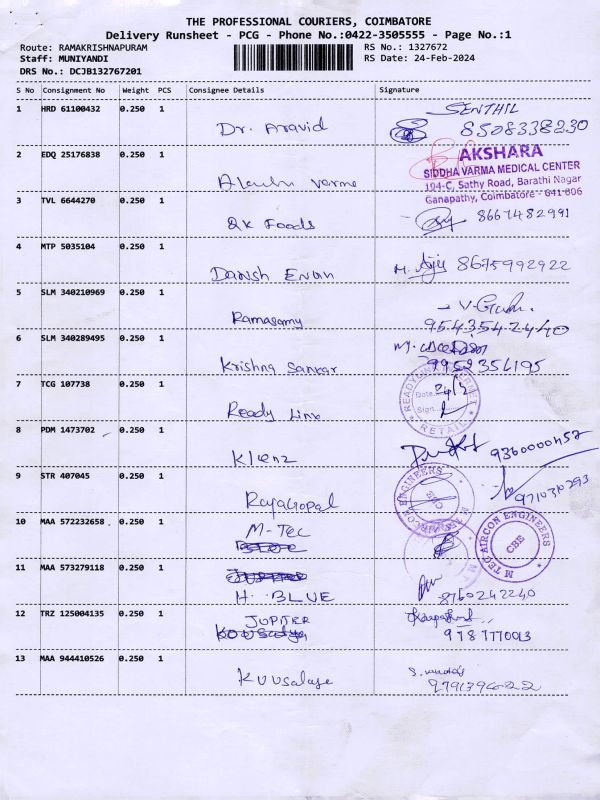 THE PROFESSIONAL COURIERS, COIMBATORE
Delivery Runsheet - PCG - Phone No.:0422-3505555 - Page No.:1
Route: RAMAKRISHNAPURAM RS No.: 1327672
Staff: MUNIYANDI RS Date: 24-Feb-2024
DRS No.: DCJB132767201
S No Consignment No Weight PCS Consignee Details Signature
1 HRD 61100432 0.250 1 Dr. Aravid SENTHIL
8508338230
2 EDQ 25176838 0.250 1 Varma
AKSHARA
SIDDHA VARMA MEDICAL CENTER
194-C, Sathy Road, Barathi Nagar
Ganapathy, Coimbatore - 641 006
3 TVL 6644270 0.250 1 QK Foods 8667482991
4 MTP 5035104 0.250 1 Danish 8675992922
5 SLM 340210969 0.250 1 Ramasamy
9543542440
6 SLM 340289495 0.250 1 Krishna Sankar
9952356195
7 TCG 107738 0.250 1 Ready Line
READYLINE
Date
Sign
RETAIL
8 PDM 1473702 0.250 1 Klenz 9360000452
9 STR 407045 0.250 1 Rajagopal 9710310293
ENGINEERS
CBE
10 MAA 572232658 0.250 1 M-Tec
M TEC AIRCON ENGINEERS
CBE
11 MAA 573279118 0.250 1 H. BLUE
8760242240
12 TRZ 125004135 0.250 1 JUPITER
9787770013
13 MAA 944410526 0.250 1 Kuusalaye